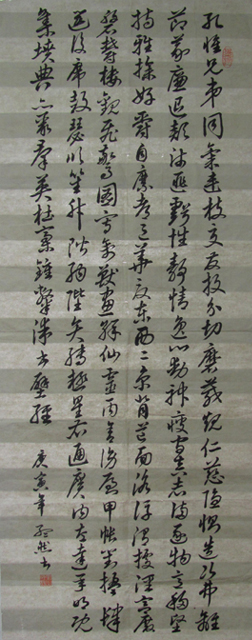 孔懷兄弟同氣連枝交友投分切磨箴規仁慈隱惻造次弗離
節義廉退顛沛匪虧性靜情逸心動神疲守真志滿逐物意移堅
持雅操好爵自縻都邑華夏東西二京背邙面洛浮渭據涇宮殿
磐鬱樓觀飛驚圖寫禽獸畫彩仙靈丙舍傍啟甲帳對楹肆
筵設席鼓瑟吹笙升階納陛弁轉疑星右通廣內左達承明既
集墳典亦聚群英杜稾鍾隸漆書壁經
庚寅年 書